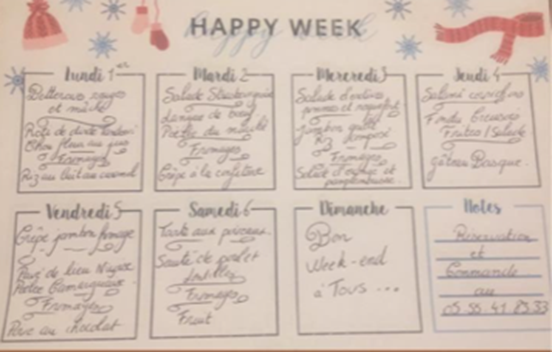 HAPPY WEEK
Lundi 1er
Betteraves rouges
et mâche
Rôti de dinde
Chou fleur au jus
Fromages
Riz au lait au caramel
Mardi 2
Salade Strasbourgeoise
Langue de bœuf
Poêlée du marché
Fromages
Crêpe à la confiture
Mercredi 3
Salade d'endives
pommes et roquefort
Jambon grillé
Riz
Fromages
Salade d'orange et
pamplemousse
Jeudi 4
Salami cornichons
Fondu Creusois
Frites / Salade
Gâteau Basque
Vendredi 5
Crêpe jambon fromage
Pavé de lieu
Poêlée Camarguaise
Fromages
Poire au chocolat
Samedi 6
Tarte aux poireaux
Sauté de poulet
lentilles
Fromages
Fruit
Dimanche
Bon
Week-end
à Tous ...
Notes
Réservation
et
Commande
au
05 55 41 85 33